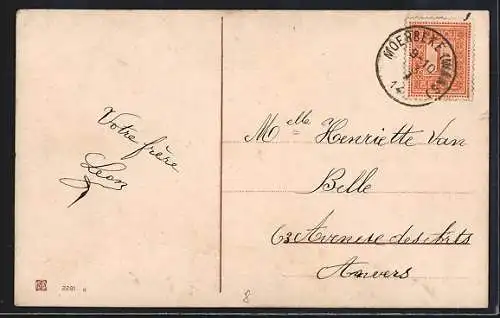 MOERBEKE (WAAS)
9-10
14
Votre frère
Léon
Melle Henriette Van
Belle
63 Avenue des Arts
Anvers
2281
8